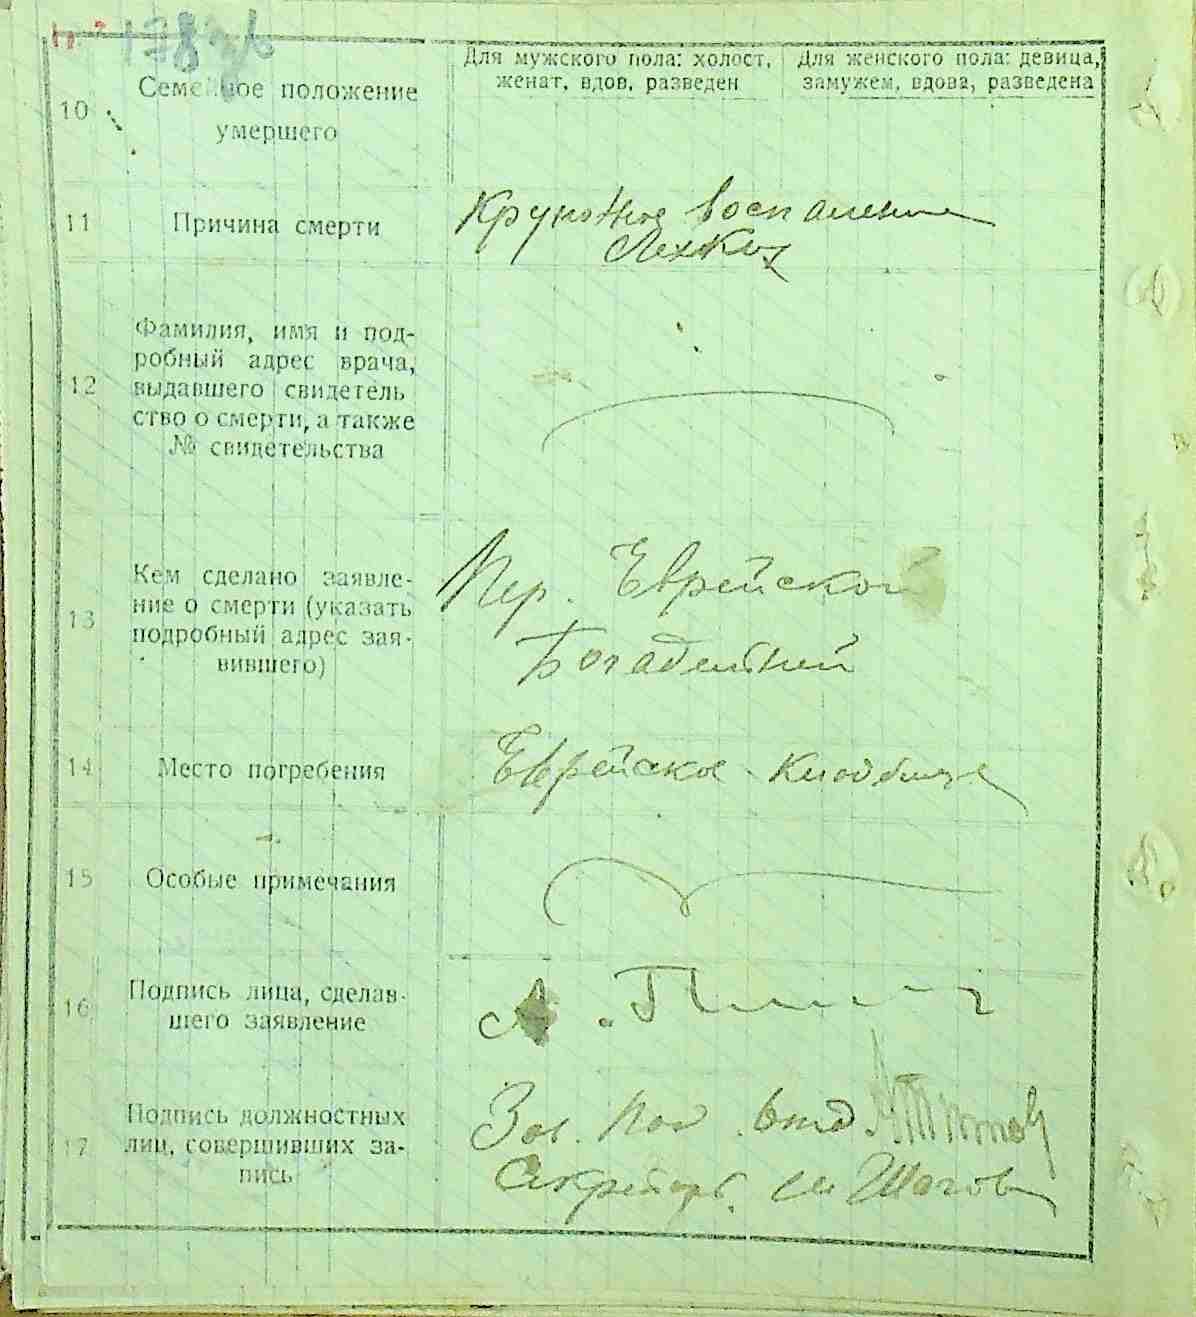 Для мужского пола: холост,
женат, вдов, разведен
Для женского пола: девица,
замужем, вдова, разведена
10
Семейное положение
умершего
11
Причина смерти
Крупозное воспаление
Легких
12
Фамилия, имя и под-
робный адрес врача,
выдавшего свидетель
ство о смерти, а также
№ свидетельства
13
Кем сделано заявле-
ние о смерти (указать
подробный адрес зая-
вившего)
Пер. Еврейской
Богадельней
14
Место погребения
Еврейское Кладбище
15
Особые примечания
16
Подпись лица, сделав-
шего заявление
17
Подпись должностных
лиц, совершивших за-
пись
Зав.
Секретарь